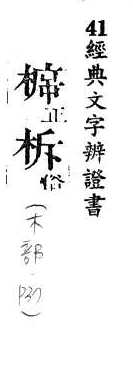 41經典文字辨證書
正
柝俗
(木部 P37)